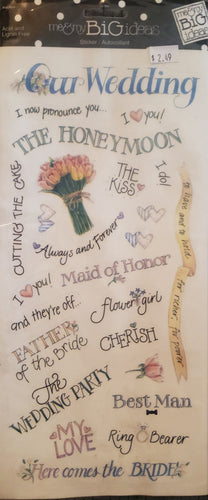 Acid and
Lignin Free
me & my BiG ideas
Sticker / Autocollant
me & my
BiG
ideas
$ 2.49
Our Wedding
I now pronounce you...
I you!
THE HONEYMOON
CUTTING THE CAKE
THE KISS
I do!
to have and to hold
for richer, for poorer
Always and Forever
I you!
Maid of Honor
and they're off...
flower girl
FATHER
of the Bride
CHERISH
the
WEDDING PARTY
Best Man
MY
LOVE
Ring Bearer
Here comes the BRIDE!